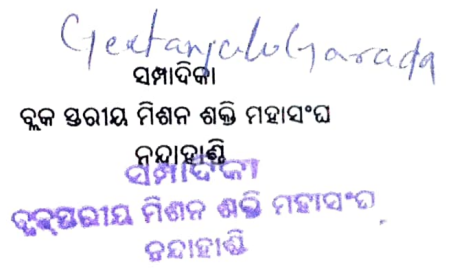 Geetanjali Garada
ସମ୍ପାଦିକା
ବ୍ଲକ ସ୍ତରୀୟ ମିଶନ ଶକ୍ତି ମହାସଂଘ
ନନ୍ଦାହାଣ୍ଡି
ସମ୍ପାଦିକା
ବ୍ଲକ୍‌ସ୍ତରୀୟ ମିଶନ ଶକ୍ତି ମହାସଂଘ
ନନ୍ଦାହାଣ୍ଡି